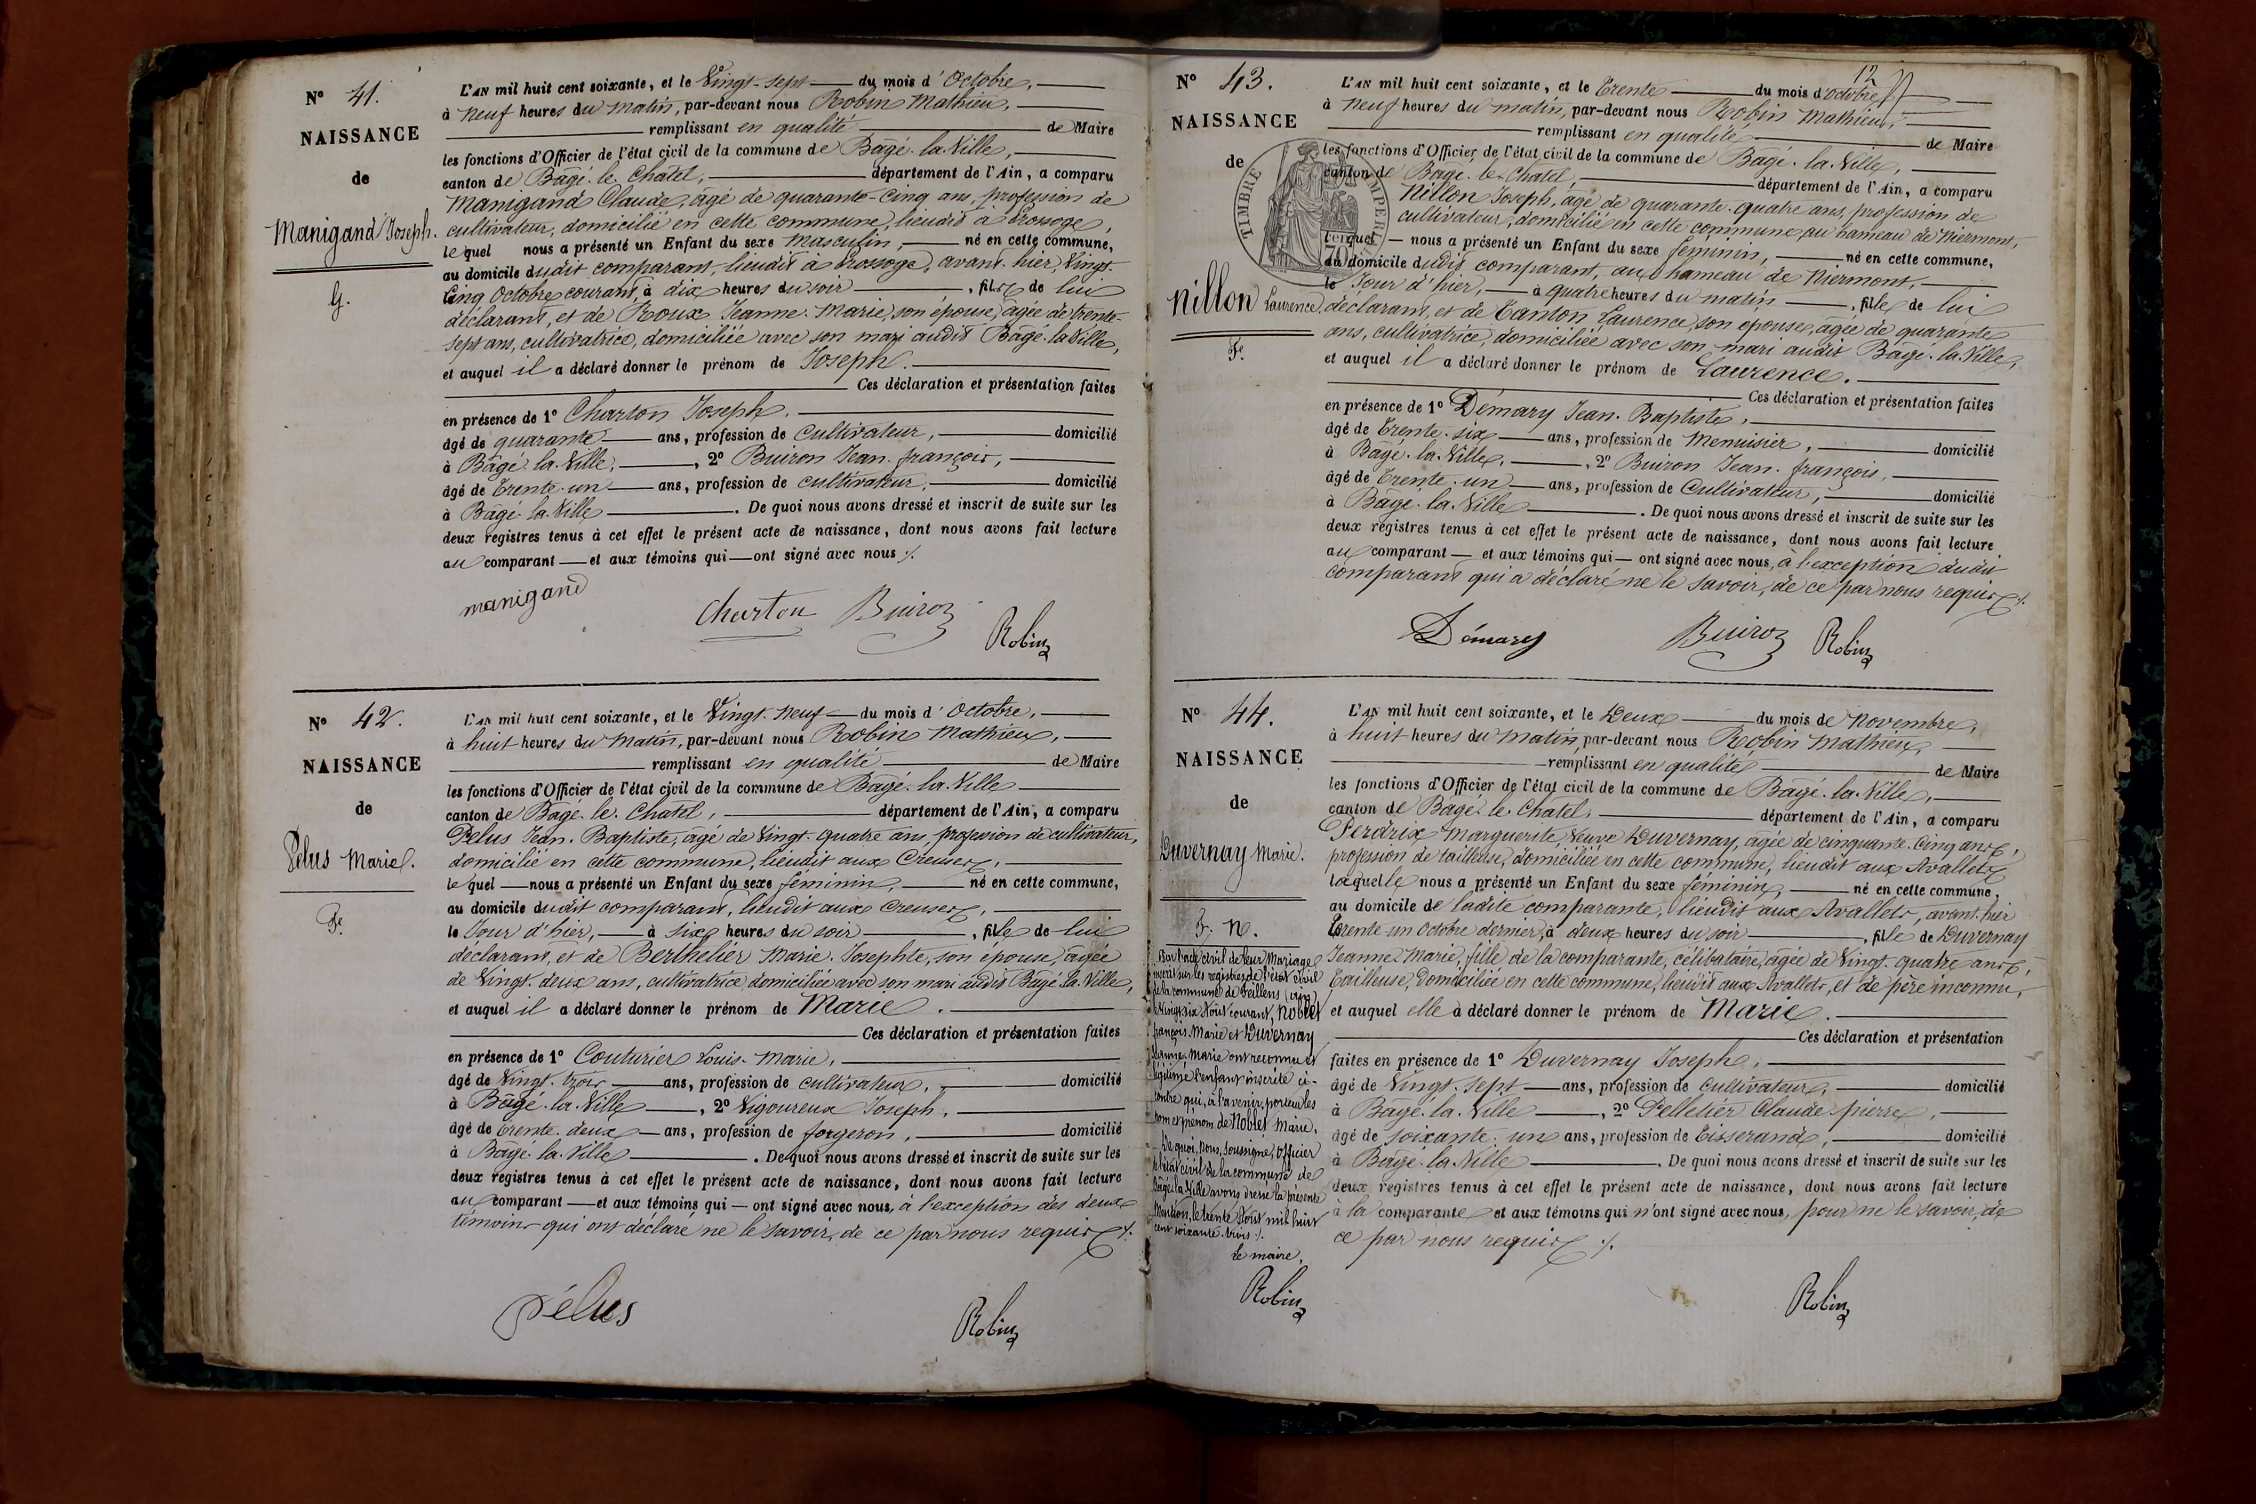 N° 41.
NAISSANCE
de
Manigand Joseph.
G.
L'AN mil huit cent soixante, et le Vingt-sept du mois d'Octobre,
à neuf heures du matin, par-devant nous Robin Mathieu,
remplissant en qualité de Maire
les fonctions d'Officier de l'état civil de la commune de Bâgé-la-Ville,
canton de Bâgé-le-Chatel, département de l'Ain, a comparu
Manigand Claude, âgé de quarante-cinq ans, profession de
cultivateur, domicilié en cette commune, lieudit à Brossoge,
lequel nous a présenté un Enfant du sexe masculin, né en cette commune,
au domicile dudit comparant, lieudit à Brossoge, avant-hier, Vingt-
Cinq Octobre courant, à dix heures du soir, fils de lui
déclarant, et de Roux Jeanne-Marie, son épouse, âgée de trente-
sept ans, cultivatrice, domiciliée avec son mari audit Bâgé-la-Ville,
et auquel il a déclaré donner le prénom de Joseph.
Ces déclaration et présentation faites
en présence de 1° Charton Joseph,
âgé de quarante ans, profession de Cultivateur, domicilié
à Bâgé-la-Ville, 2° Buiron Jean-françois,
âgé de Trente-un ans, profession de cultivateur, domicilié
à Bâgé-la-Ville. De quoi nous avons dressé et inscrit de suite sur les
deux registres tenus à cet effet le présent acte de naissance, dont nous avons fait lecture
au comparant et aux témoins qui ont signé avec nous ./.
manigand Charton Buiron
Robin
N° 42.
NAISSANCE
de
Pelus Marie.
Fe.
L'AN mil huit cent soixante, et le Vingt-neuf du mois d'Octobre,
à huit heures du matin, par-devant nous Robin Mathieu,
remplissant en qualité de Maire
les fonctions d'Officier de l'état civil de la commune de Bâgé-la-Ville
canton de Bâgé-le-Chatel, département de l'Ain, a comparu
Pelus Jean-Baptiste, âgé de Vingt-quatre ans, profession de cultivateur,
domicilié en cette commune, lieudit aux Creuses,
lequel nous a présenté un Enfant du sexe féminin, né en cette commune,
au domicile dudit comparant, lieudit aux Creuses,
le Jour d'hier, à six heures du soir, fille de lui
déclarant, et de Berthelier Marie-Josephte, son épouse, âgée
de Vingt-deux ans, cultivatrice domiciliée avec son mari audit Bâgé-la-Ville,
et auquel il a déclaré donner le prénom de Marie.
Ces déclaration et présentation faites
en présence de 1° Couturier Louis-Marie,
âgé de Vingt-trois ans, profession de cultivateur, domicilié
à Bâgé-la-Ville, 2° Vigoureux Joseph,
âgé de trente-deux ans, profession de forgeron, domicilié
à Bâgé-la-Ville. De quoi nous avons dressé et inscrit de suite sur les
deux registres tenus à cet effet le présent acte de naissance, dont nous avons fait lecture
au comparant et aux témoins qui ont signé avec nous, à l'exception des deux
témoins qui ont déclaré ne le savoir, de ce par nous requis ./.
Pélus
Robin
12
N° 43.
NAISSANCE
de
TIMBRE IMPERIAL
70
Nillon Laurence.
Fe.
L'AN mil huit cent soixante, et le Trente du mois d'octobre
à neuf heures du matin, par-devant nous Robin Mathieu,
remplissant en qualité de Maire
les fonctions d'Officier de l'état civil de la commune de Bâgé-la-Ville,
canton de Bâgé-le-Chatel, département de l'Ain, a comparu
Nillon Joseph, âgé de quarante-quatre ans, profession de
cultivateur, domicilié en cette commune, au hameau de Niermont,
lequel nous a présenté un Enfant du sexe féminin, né en cette commune,
au domicile dudit comparant, au hameau de Niermont,
le Jour d'hier, à quatre heures du matin, fille de lui
déclarant, et de Tanton Laurence, son épouse, âgée de quarante
ans, cultivatrice, domiciliée avec son mari audit Bâgé-la-Ville,
et auquel il a déclaré donner le prénom de Laurence.
Ces déclaration et présentation faites
en présence de 1° Démary Jean-Baptiste,
âgé de Trente-six ans, profession de Menuisier, domicilié
à Bâgé-la-Ville, 2° Buiron Jean-françois,
âgé de Trente-un ans, profession de Cultivateur, domicilié
à Bâgé-la-Ville. De quoi nous avons dressé et inscrit de suite sur les
deux registres tenus à cet effet le présent acte de naissance, dont nous avons fait lecture
au comparant et aux témoins qui ont signé avec nous, à l'exception dudit
comparant qui a déclaré ne le savoir, de ce par nous requis ./.
Démary Buiron Robin
N° 44.
NAISSANCE
de
Duvernay Marie.
F. N.
Par l'acte civil de leur Mariage
inscrit sur les registres de l'état civil
de la commune de Feillens (Ain)
le Vingt-six Août courant, Noblet
françois-Marie et Duvernay
Jeanne-Marie ont reconnu et
légitimé l'enfant inscrite ci-
contre qui, à l'avenir, portera les
nom et prénom de Noblet Marie.
De quoi, Nous, soussigné, Officier
de l'état civil de la commune de
Bâgé-la-Ville avons dressé la présente
Mention, le trente Août mil huit
cent soixante-trois ./.
Le maire,
Robin
L'AN mil huit cent soixante, et le Deux du mois de Novembre,
à huit heures du matin, par-devant nous Robin Mathieu,
remplissant en qualité de Maire
les fonctions d'Officier de l'état civil de la commune de Bâgé-la-Ville,
canton de Bâgé-le-Chatel, département de l'Ain, a comparu
Perdrix Marguerite, Veuve Duvernay, âgée de cinquante-cinq ans,
profession de tailleuse, domiciliée en cette commune, lieudit aux Avallets
laquelle nous a présenté un Enfant du sexe féminin, né en cette commune,
au domicile de ladite comparante, lieudit aux Avallets, avant-hier
Trente-un Octobre dernier, à deux heures du soir, fille de Duvernay
Jeanne-Marie, fille de la comparante, célibataire, âgée de Vingt-quatre ans,
Tailleuse, domiciliée en cette commune, lieudit aux Avallets, et de père inconnu,
et auquel elle a déclaré donner le prénom de Marie.
Ces déclaration et présentation
faites en présence de 1° Duvernay Joseph,
âgé de Vingt-sept ans, profession de Cultivateur, domicilié
à Bâgé-la-Ville, 2° Pelletier Claude-pierre,
âgé de soixante-un ans, profession de Tisserand, domicilié
à Bâgé-la-Ville. De quoi nous avons dressé et inscrit de suite sur les
deux registres tenus à cet effet le présent acte de naissance, dont nous avons fait lecture
à la comparante et aux témoins qui n'ont signé avec nous, pour ne le savoir, de
ce par nous requis ./.
Robin